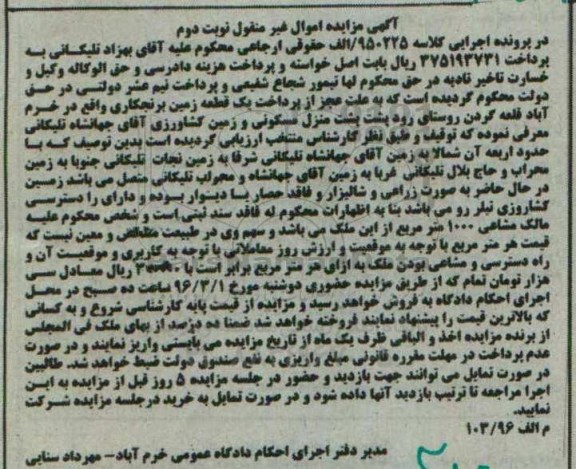 آگهی مزایده اموال غیر منقول نوبت دوم
در پرونده اجرایی کلاسه ۹۵۰۲۲۵/الف حقوقی ارجاعی محکوم علیه آقای بهزاد تلیکانی به
پرداخت ۳۷۵۱۹۳۷۳۱ ریال بابت اصل خواسته و پرداخت هزینه دادرسی و حق الوکاله وکیل و
خسارت تاخیر تادیه در حق محکوم لها تیمور شجاع شفیعی و پرداخت نیم عشر دولتی در حق
دولت محکوم گردیده است که به علت عجز از پرداخت یک قطعه زمین برنجکاری واقع در خرم
آباد قلعه گردن روستای رود پشت پشت منزل مسکونی و زمین کشاورزی آقای جهانشاه تلیکانی
معرفی نموده که توقیف و طبق نظر کارشناس منتخب ارزیابی گردیده است بدین توصیف که با
حدود اربعه آن شمالا به زمین آقای جهانشاه تلیکانی شرقا به زمین نجات تلیکانی جنوبا به زمین
محراب و حاج بلال تلیکانی غربا به زمین آقای جهانشاه و محراب تلیکانی متصل می باشد زمین
در حال حاضر به صورت زراعی و شالیزار و فاقد حصار یا دیوار بوده و دارای راه دسترسی
کشاورزی تیلر رو می باشد بنا به اظهارات محکوم له فاقد سند ثبتی است و شخص محکوم علیه
مالک مشاعی ۱۰۰۰ متر مربع از این ملک می باشد و سهم وی در طبیعت و معین نیست که
قیمت هر متر مربع با توجه به موقعیت و ارزش روز معاملاتی با توجه به کاربری و موقعیت آن و
راه دسترسی و مشاعی بودن ملک به ازای هر متر مربع برابر است با ریال معادل سی
هزار تومان تمام که از طریق مزایده حضوری دوشنبه مورخ ۹۶/۳/۱ ساعت ده صبح در محل
اجرای احکام دادگاه به فروش خواهد رسید و مزایده از قیمت پایه کارشناسی شروع و به کسانی
که بالاترین قیمت را پیشنهاد نمایند فروخته خواهد شد ضمنا ده درصد از بهای ملک فی المجلس
از برنده مزایده اخذ و الباقی ظرف یک ماه از تاریخ مزایده می بایستی واریز نمایند و در صورت
عدم پرداخت در مهلت مقرره قانونی مبلغ واریزی به نفع صندوق دولت ضبط خواهد شد. طالبین
در صورت تمایل می توانند جهت بازدید و حضور در جلسه مزایده ۵ روز قبل از مزایده به این
اجرا مراجعه تا ترتیب بازدید آنها داده شود و در صورت تمایل به خرید درجلسه مزایده شرکت
نمایید.
م الف ۱۰۳/۹۶
مدیر دفتر اجرای احکام دادگاه عمومی خرم آباد- مهرداد سنایی